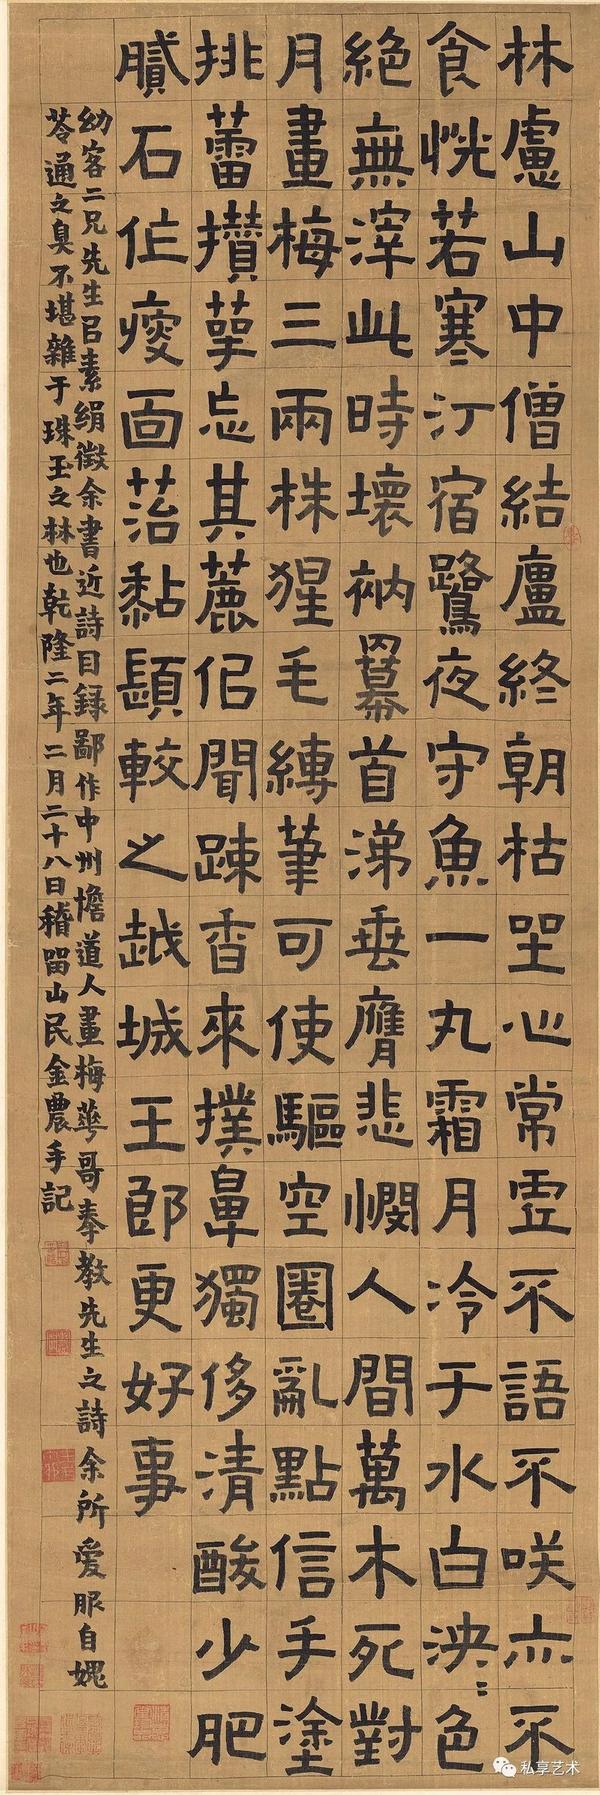 林慮山中僧結廬終朝枯坐心常虛不語不咲亦不
食恍若寒汀宿鷺夜守魚一丸霜月冷于水白泱〻色
絕無滓此時壞衲羃首涕垂膺悲憫人間萬木死對
月畫梅三兩株猩毛縛筆可使驅空圈亂點信手塗
挑蕾攢萼忘其麤但聞疎香來撲鼻獨侈清酸少肥
膩石作瘦面苔黏顋較之越城王郎更好事
幼客二兄先生以素絹徵余書近詩目録鄙作中州憺道人畫梅華哥奉教先生之詩余所爱服自媿
苓通之臭不堪雜于珠玉之林也乾隆二年二月二十八日稽留山民金農手記
私享艺术